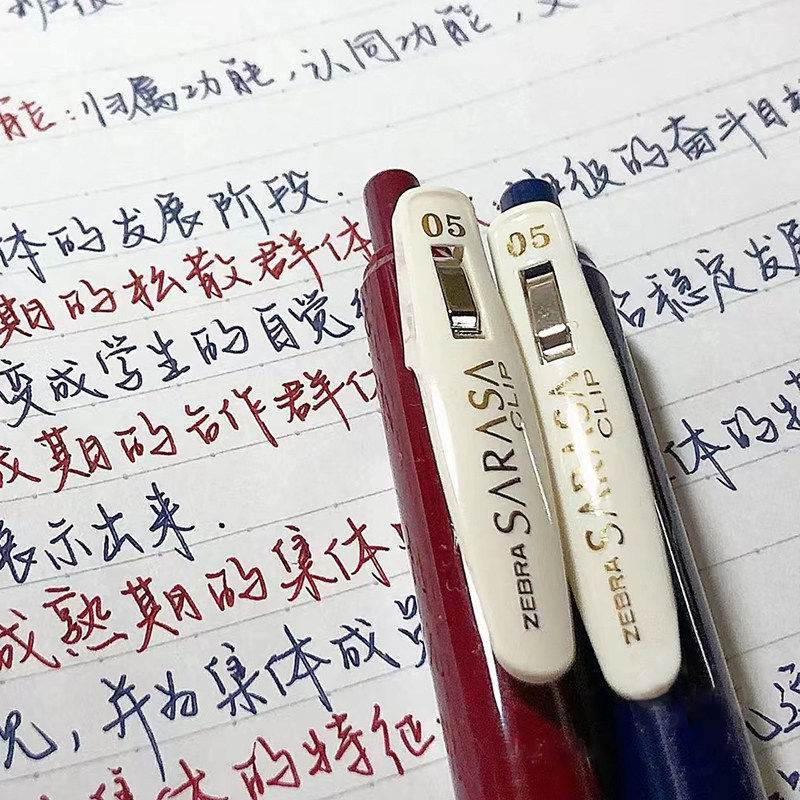 能:归属功能,认同功能,
体的发展阶段.
班级的奋斗目标
期的松散群体
变成学生的自觉
稳定发展
成期的合作群体
体的特
展示出来.
成熟期的集体
况,并为集体成员
集体的特征
05
SARASA CLIP
ZEBRA
05
SARASA CLIP
ZEBRA